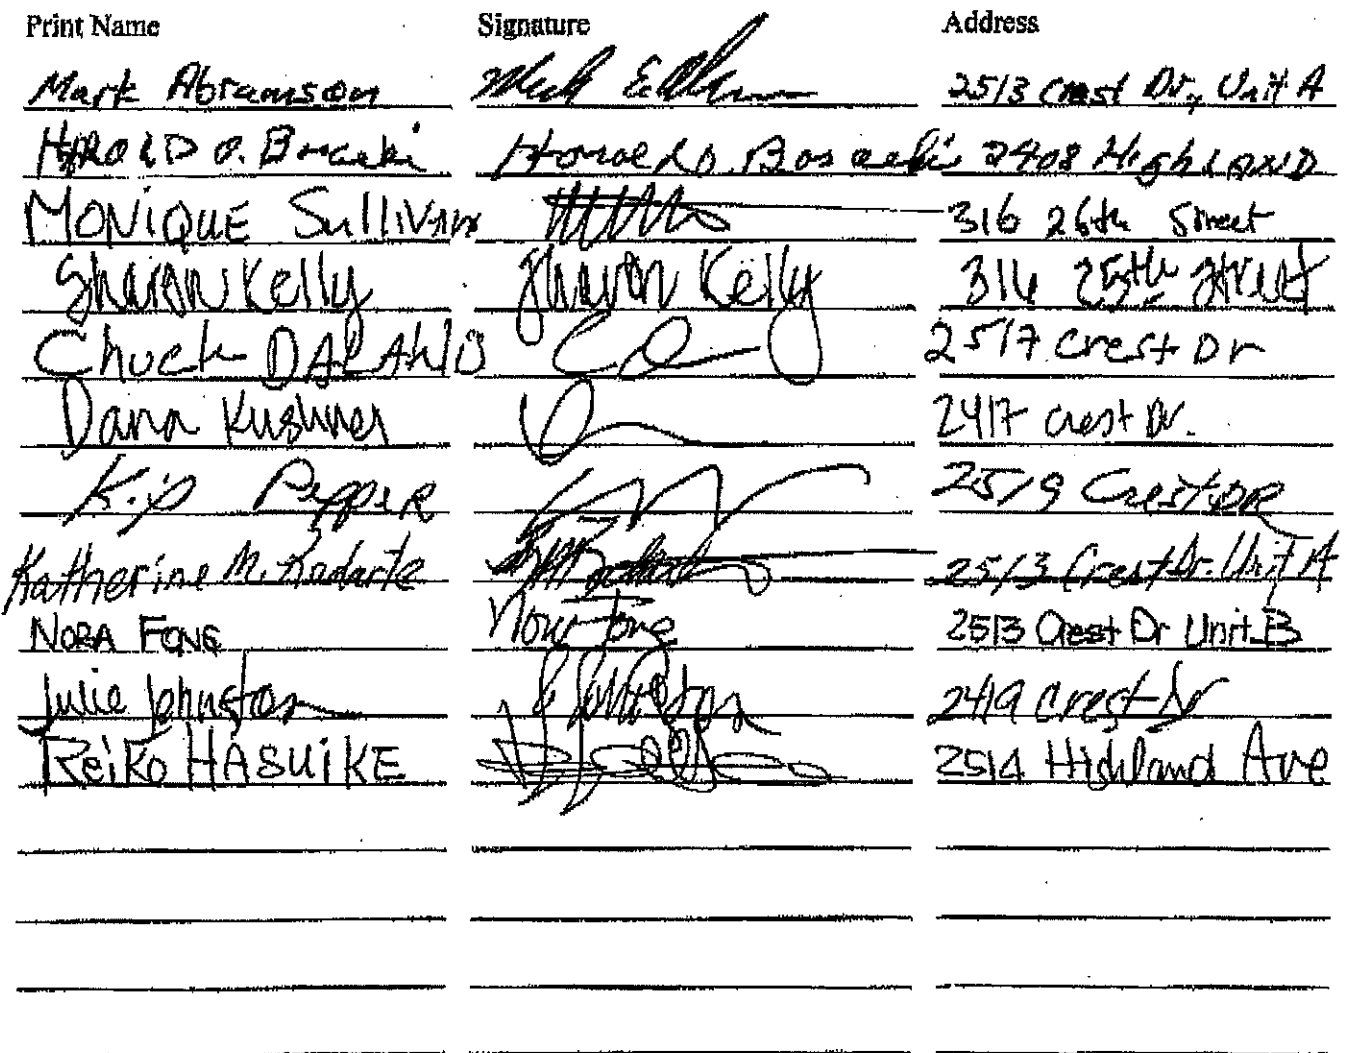 Print Name Signature Address
Mark Abramson 2513 Crest Dr, Unit A
HAROLD O. Harold O. 2408 HighLAND
MONiQUE SulliVAN 316 26th Street
Sharon Kelly Sharon Kelly 316 25th Street
Chuck 2517 Crest Dr
Dana Kushner 2417 Crest Dr.
Kip PeppeR 2519 Crest DR
Katherine M. 2513 Crest Dr. Unit A
NORA FONG Nora Fong 2513 Crest Dr Unit B
Julie Johnston J Johnston 2419 Crest Dr
ReiKo HASUiKE 2514 Highland Ave